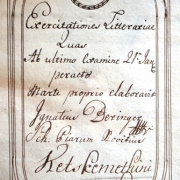 Exercitationes Litterariae
Quas
Ab ultimo Examine 21 Jan
peracto
Marte proprio elaboravit
Ignatius Deringer
Sch. Piarum Novitius
Ketskemethini